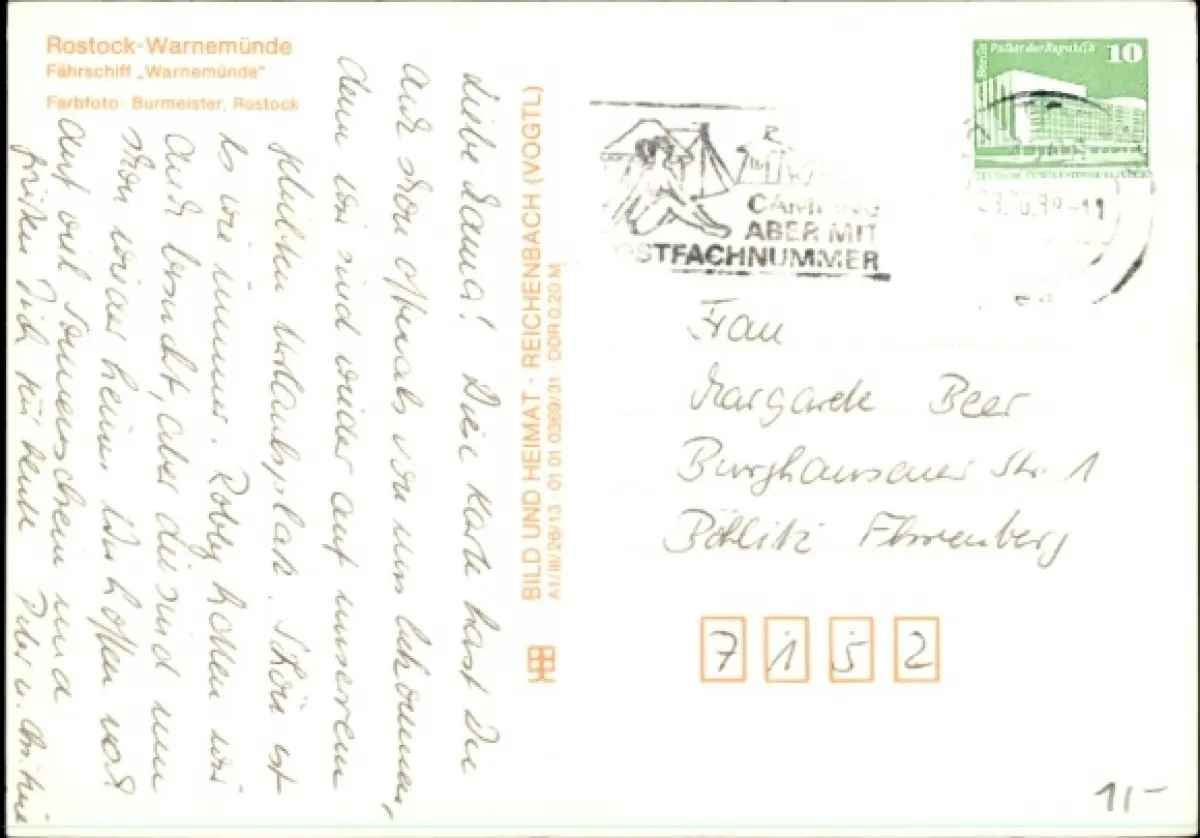 Rostock-Warnemünde
Fährschiff „Warnemünde"
Farbfoto: Burmeister, Rostock
Liebe Hanna! Diese Karte hast Du
auch schon oftmals von uns bekommen,
denn wir sind wieder auf unserem
Urlaubsplatz. Schön ist
es wie immer. Robby hatten wir
auch besucht, aber die sind nun
schon wieder heim. Wir hoffen noch
auf viel Sonnenschein und
grüßen Dich für heute Peter u.
BILD UND HEIMAT · REICHENBACH (VOGTL)
A1/III/26/13 · 01 01 0369/31 · DDR 0,20 M
CAMPING
ABER MIT
OSTFACHNUMMER
Berlin Palast der Republik 10
-11
Frau
Margarete Beer
Burghausener Str. 1
Böhlitz Ehrenberg
7 1 5 2
11-